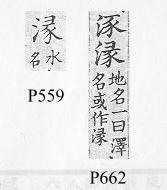 湪
水
名
P559
湪
地名一曰澤
名或作湪
P662